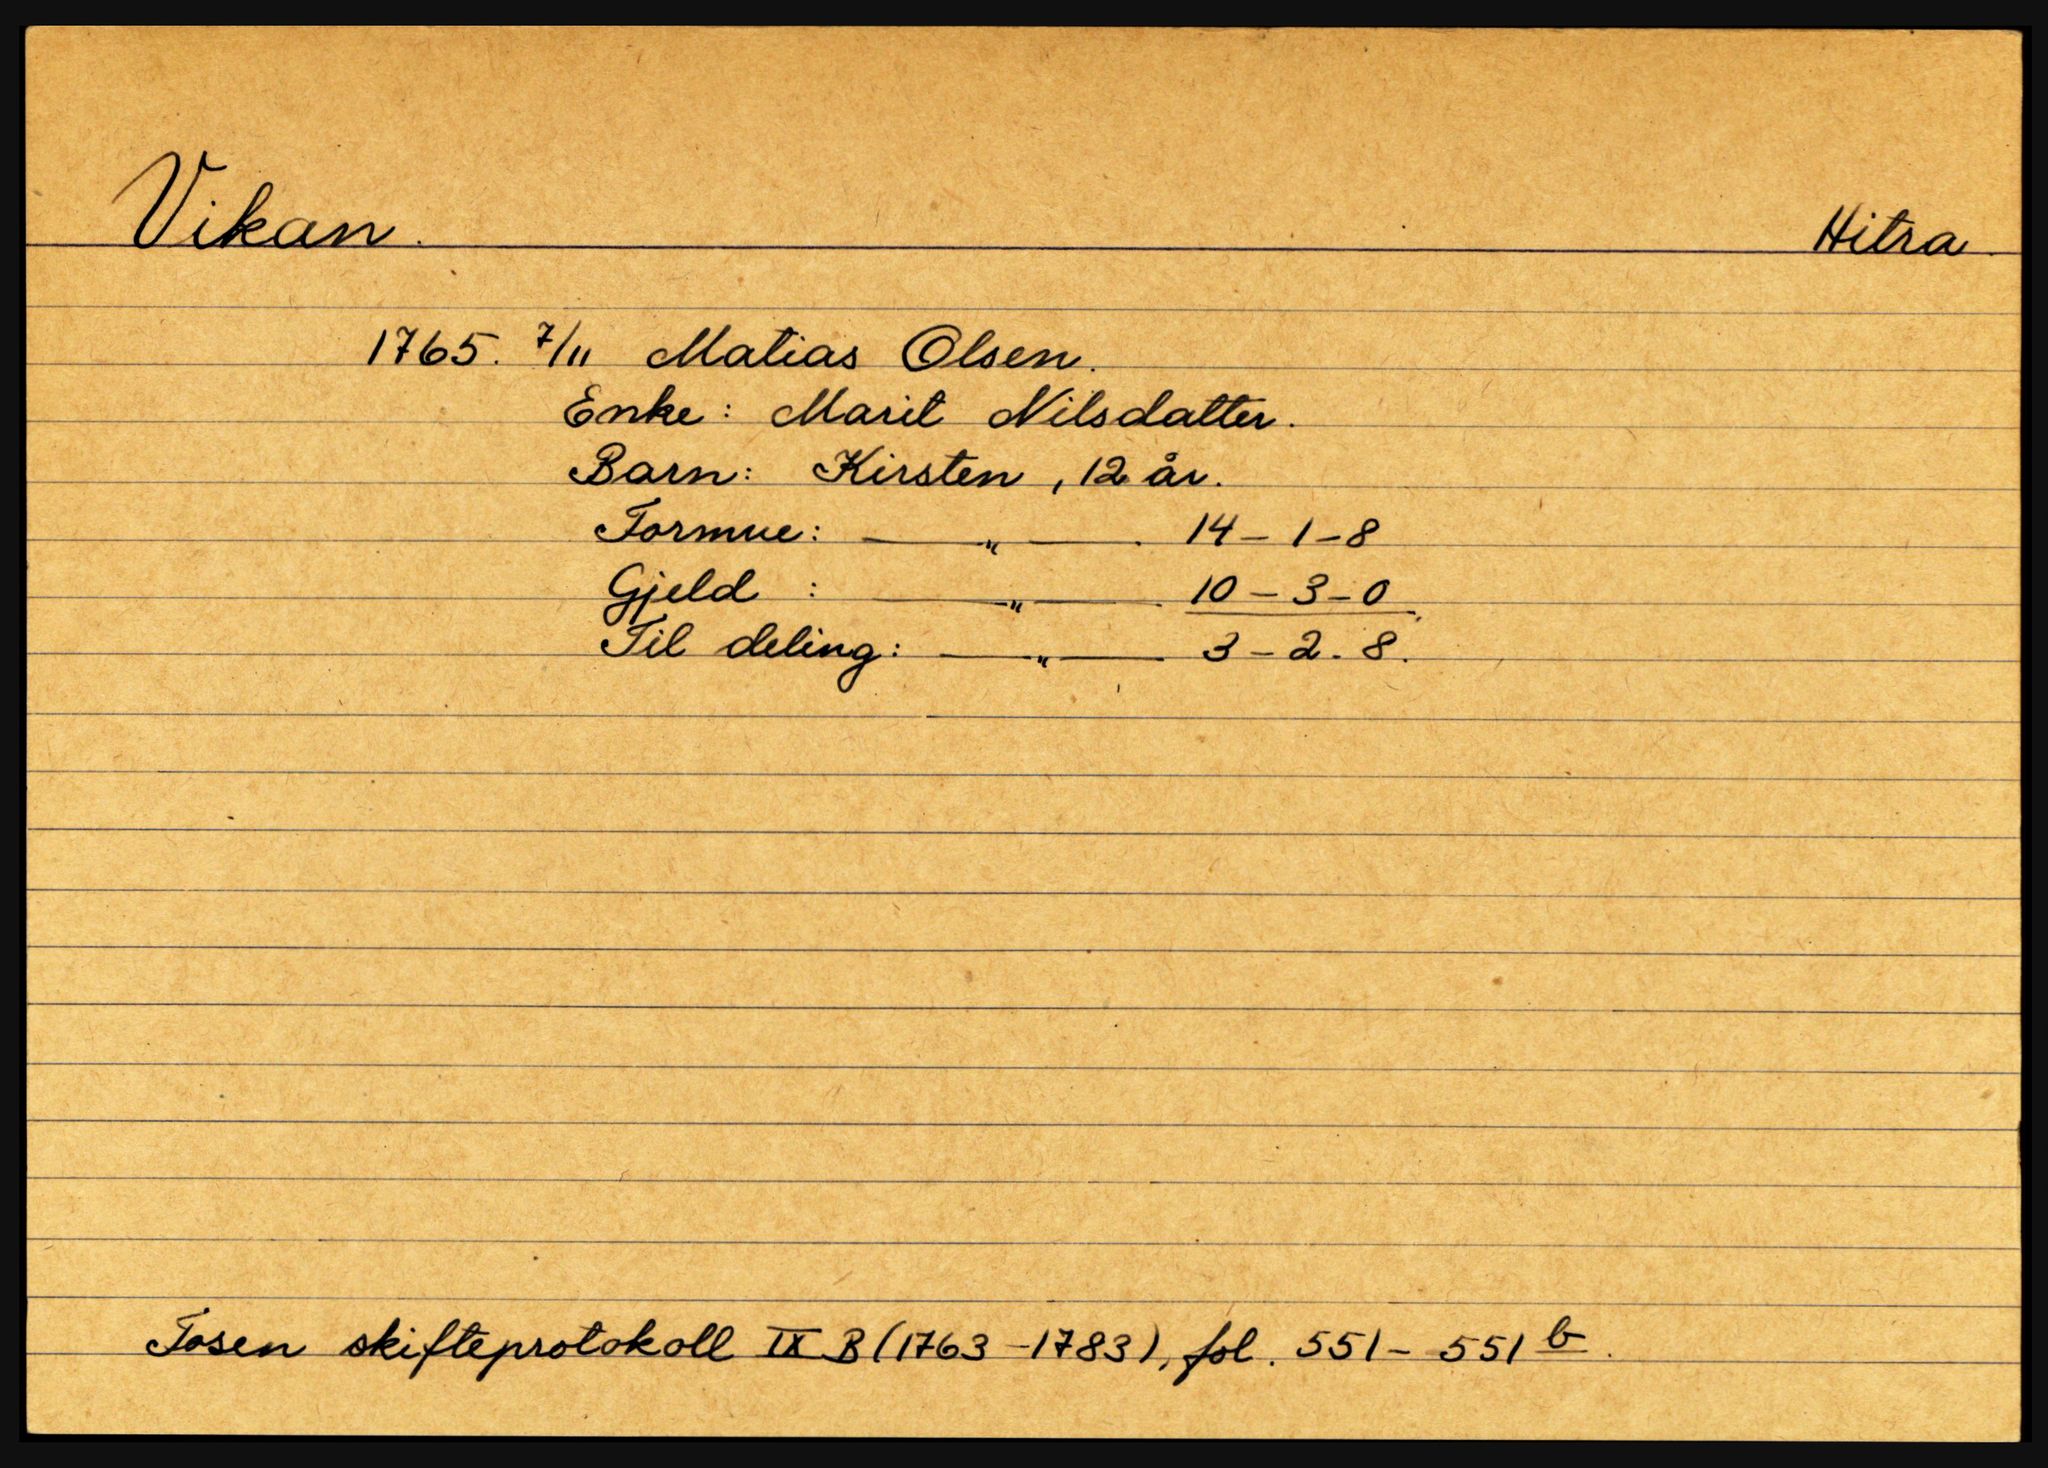 Vikan. Hitra
1765. 7/11 Matias Olsen.
Enke: Marit Nilsdatter.
Barn: Kirsten, 12 år.
Formue: — „ — . 14 – 1 – 8
Gjeld : — „ — . 10 – 3 – 0
Til deling: — „ — . 3 – 2 . 8.
Fosen skifteprotokoll IX B (1763 – 1783), fol. 551 – 551 b.